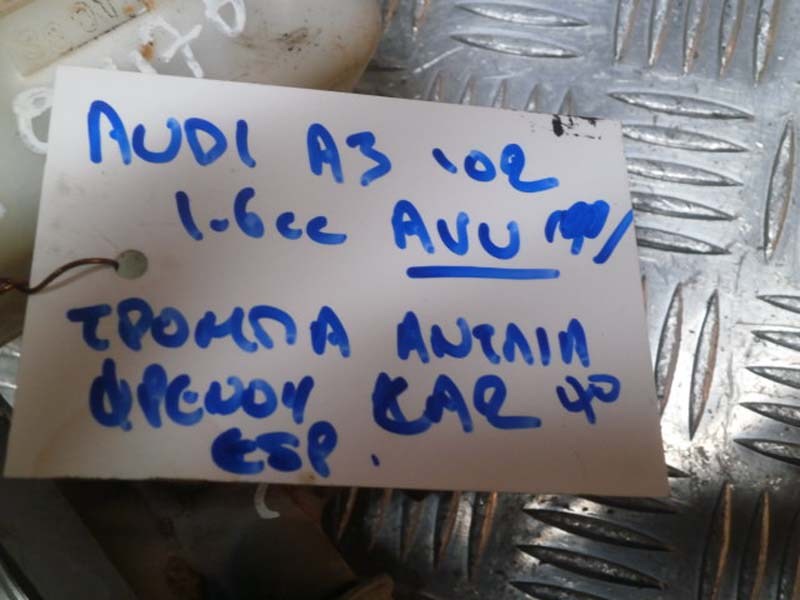 AUDI A3 '02
1.6cc AVU
ΤΡΟΜΠΑ ΑΝΤΛΙΑ
ΦΡΕΝΟΥ ΚΑΛ 40
ESP.